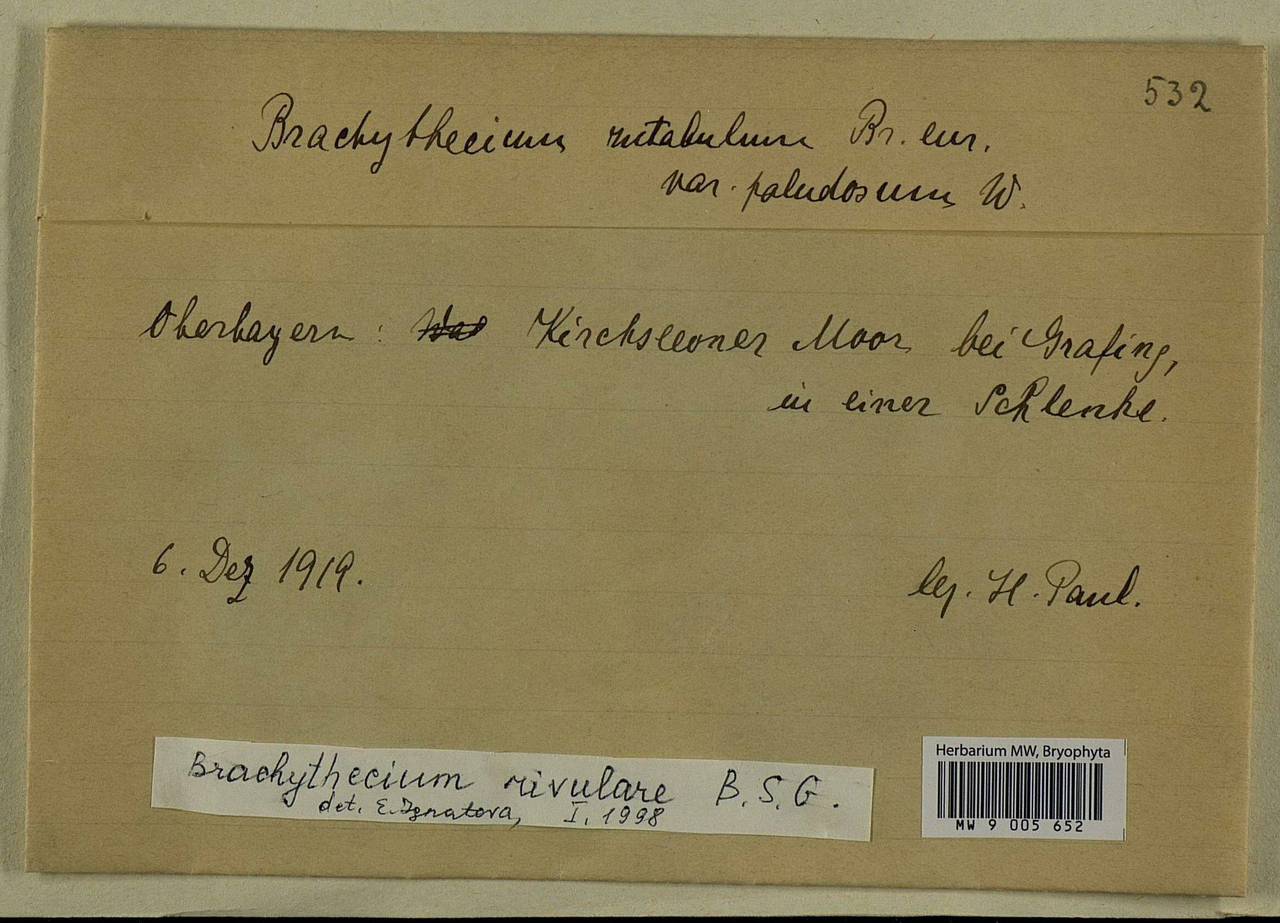 532
Brachythecium rutabulum Br. eur.
var. paludosum W.
Oberbayern: Kirchseeoner Moor bei Grafing,
in einer Schlenke.
6. Dez 1919.
leg. H. Paul.
Brachythecium rivulare B.S.G.
det. E. Ignatova, I. 1998
Herbarium MW, Bryophyta
MW 9 005 652